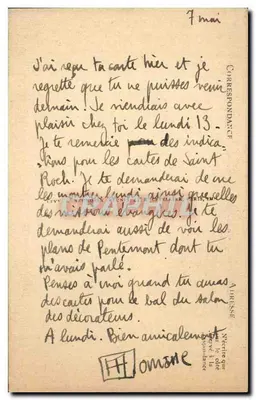 7 mai
J'ai reçu ta carte hier et je
regrette que tu ne puisses venir
demain. Je viendrais avec
plaisir chez toi le lundi 13.
Je te remercie des indica
tions pour les cartes de Saint
Roch. Je te demanderai de me
les montrer lundi ainsi que celles
des Je te
demanderai aussi de voir les
plans de Pentemont dont tu
m'avais parlé.
Penses à moi quand tu auras
des cartes pour le bal du salon
des décorateurs.
A lundi. Bien amicalement
CORRESPONDANCE
ADRESSE